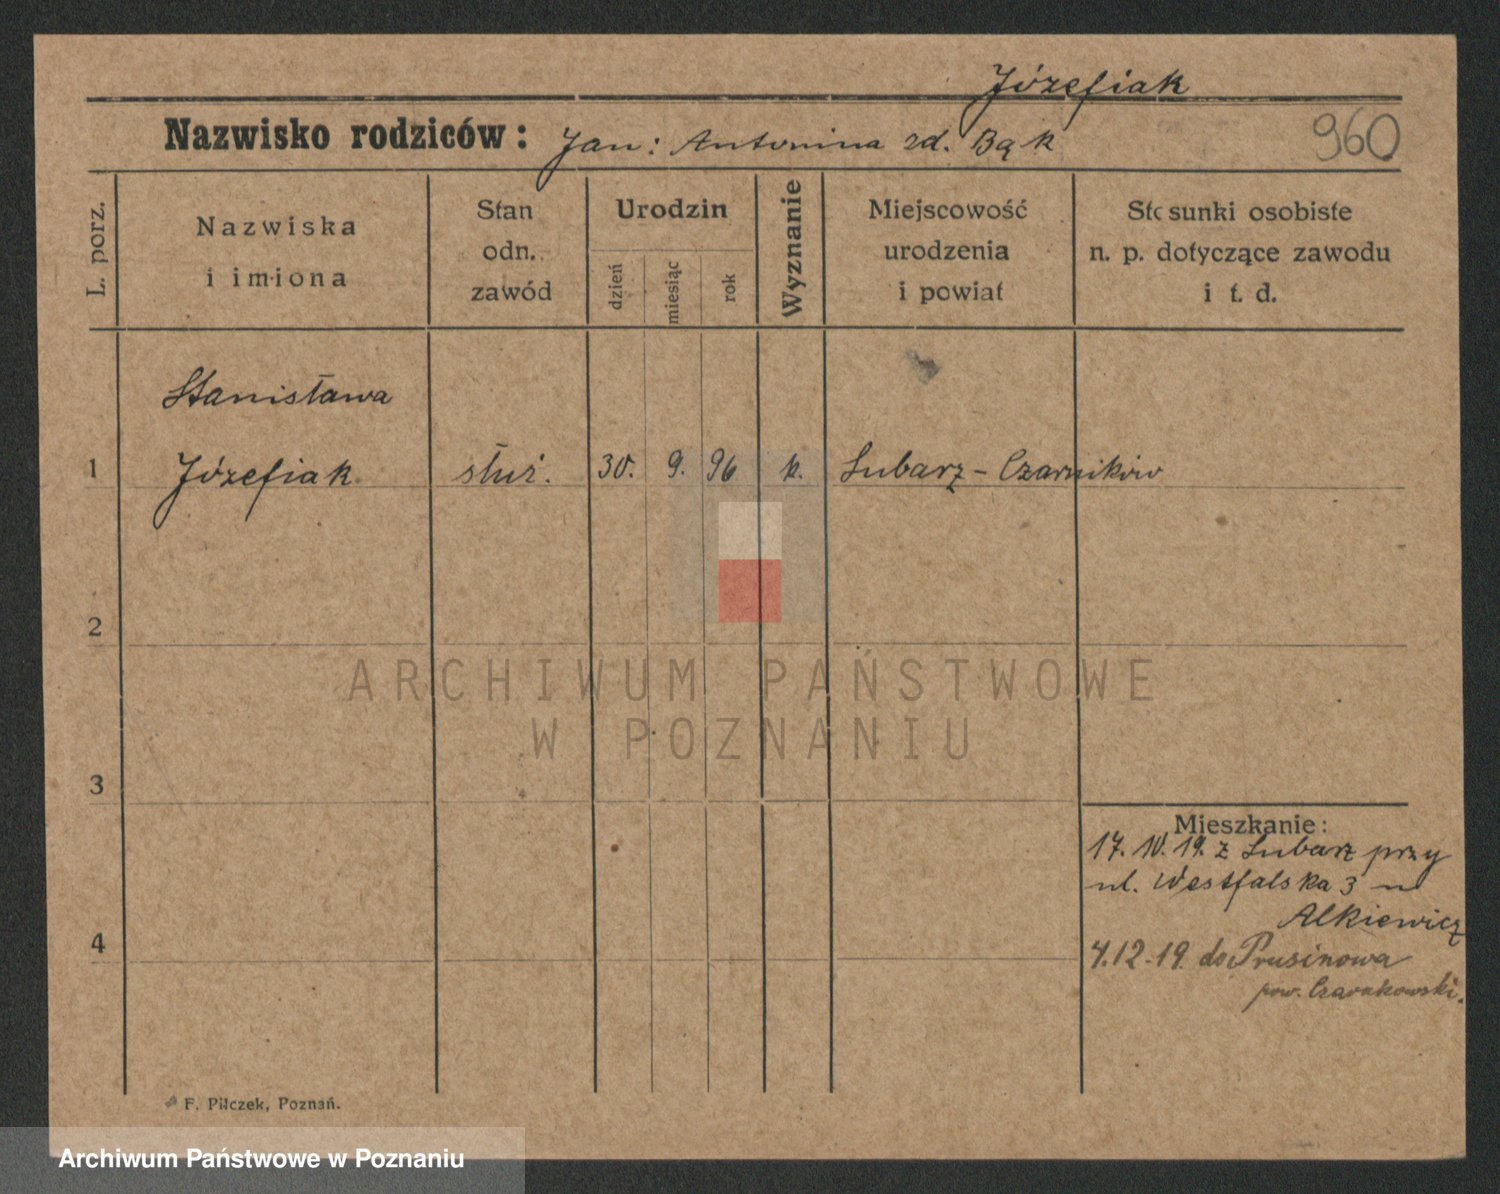 Józefiak
Nazwisko rodziców: Jan: Antonina zd. Bąk
960
L. porz.
Nazwiska
i imiona
Stan
odn.
zawód
Urodzin
dzień
miesiąc
rok
Wyznanie
Miejscowość
urodzenia
i powiat
Stosunki osobiste
n. p. dotyczące zawodu
i t. d.
Stanisława
1 Józefiak służ. 30. 9. 96 k. Lubarz - Czarników
2
3
4
Mieszkanie:
17. 10. 19. z Lubarz przy
ul. Westfalska 3 u
Alkiewicz
4.12.19. do Prusinowa
pow. Czarnkowski.
F. Pilczek, Poznań.
ARCHIWUM PAŃSTWOWE
W POZNANIU
Archiwum Państwowe w Poznaniu